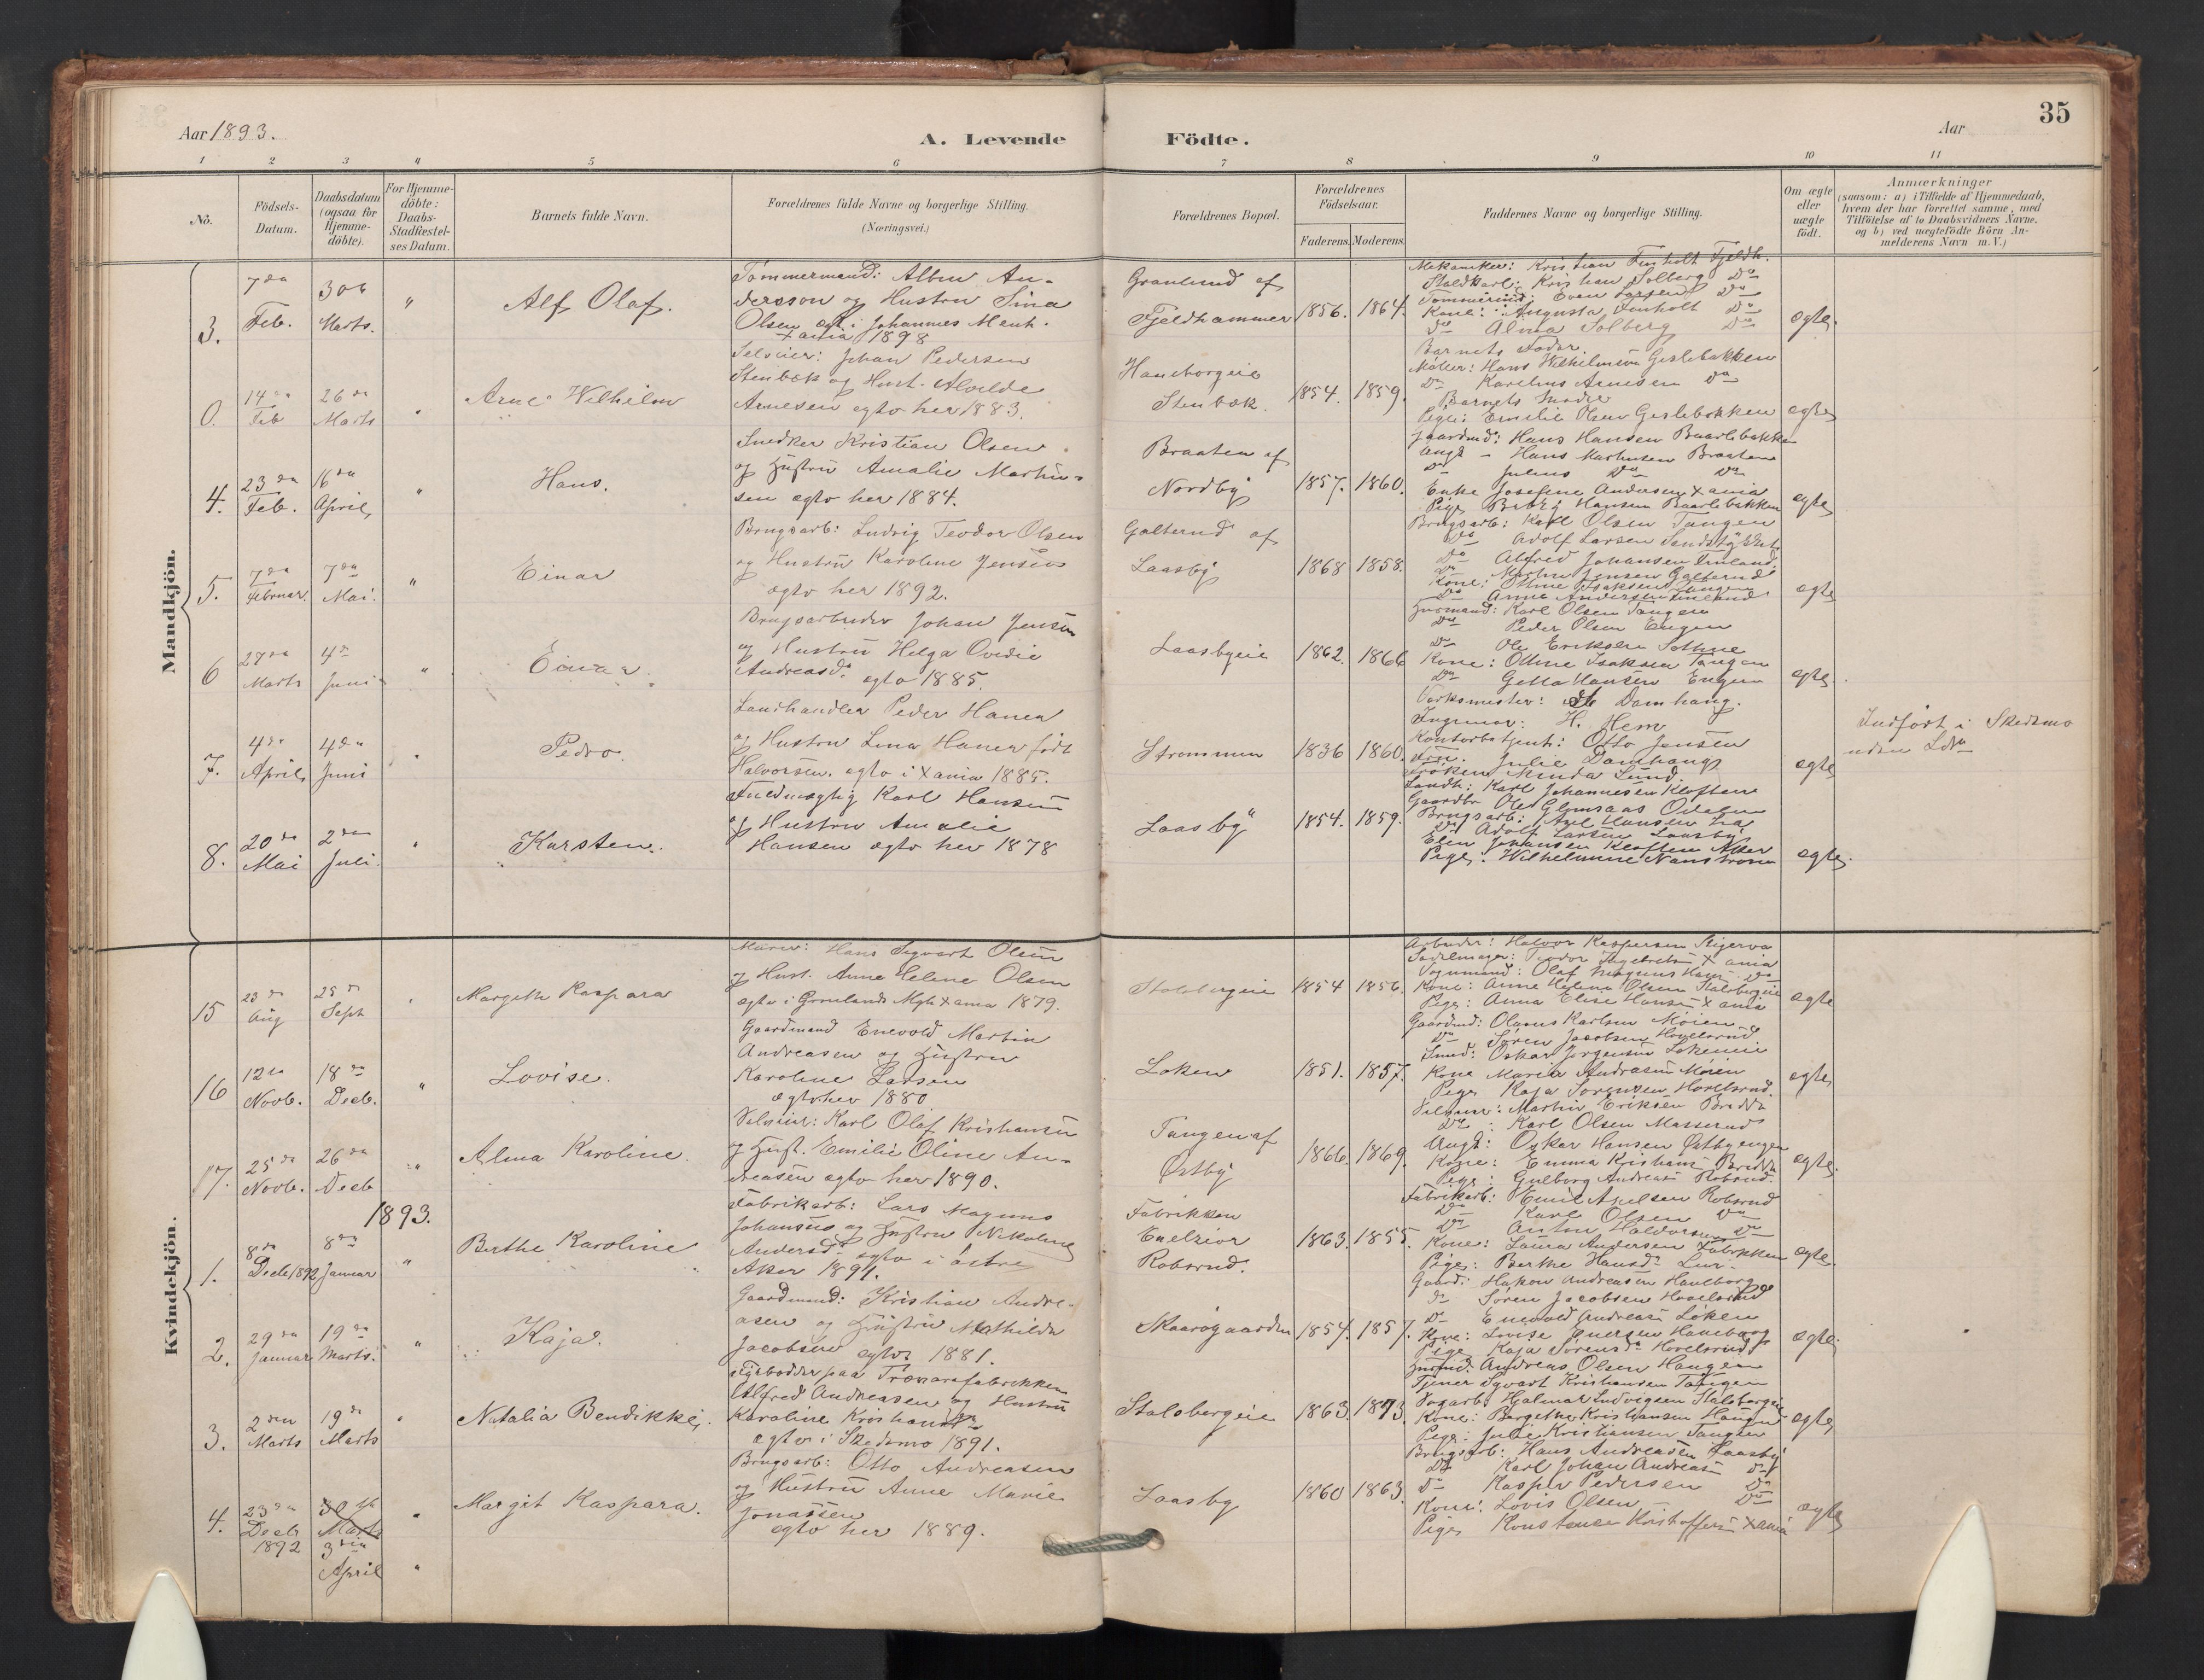 Aar 1893.
A. Levende Födte.
Aar
35
1 2 3 4 5 6 7 8 9 10 11
No.
Födsels-
Datum.
Daabsdatum
(ogsaa for
Hjemme-
döbte).
For Hjemme-
döbte:
Daabs-
Stadfæstel-
ses Datum.
Barnets fulde Navn.
Forældrenes fulde Navne og borgerlige Stilling.
(Næringsvei.)
Forældrenes Bopæl.
Forældrenes
Födselsaar.
Faderens. Moderens.
Faddernes Navne og borgerlige Stilling.
Om ægte
eller
uægte
födt.
Anmærkninger
(saasom: a) i Tilfælde af Hjemmedaab,
hvem der har forrettet samme, med
Tilföielse af to Daabsvidners Navne,
og b) ved uægtefödte Börn An-
melderens Navn m. V.)
Mandkjön.
3.
7de
Feb.
30te
Marts.
"
Alf Olaf.
Tömmermand: Albin An-
dersson og Hustru Sina
Olsen egt. i Johannes Menh.
Xania 1898
Granlund af
Fjeldhammer
1856. 1864.
Mekaniker: Kristian Finholt Fjeldh.
Staldkarl: Kristian Solberg Do
Tömmermd: Even Larsen Do
Kone: Augusta Finholt Do
Do Alma Solberg Do
Barnets Fader.
egte.
0.
14de
Feb
26de
Marts
"
Arne Wilhelm
Selveier: Johan Pedersen
Stenbæk og Hust. Alvilde
Arnesen egto her 1883.
Haneborgeie
Stenbæk.
1854. 1859.
Möller: Hans Wilhelmsen Geslebakken
Do Karelius Arnesen Do
Barnets Moder
Pige: Emilie Olsen Geslebakken
egte
4.
23de
Feb.
16de
April
"
Hans.
Snedker Kristian Olsen
og Hustru Amalie Martin-
sen egto her 1884.
Braaten af
Nordby
1857. 1860.
Gaardmd: Hans Hansen Baarlibakken
Ungk - Hans Martinsen Braaten
Do Julius Do Do
Enke Josefine Andersen Xania
Pige Hansen Baarlibakken
egte
5.
7de
Februar.
7de
Mai.
"
Einar
Brugsarb: Ludvig Teodor Olsen
og Hustru Karoline Jensen
egto her 1892.
Galterud af
Laasby
1868 1858.
Brugsarb: Karl Olsen Tangen
Do Adolf Larsen
Do Alfred Johansen Finland
Do Martin Jensen Galterud
Kone: Oline Isaksen Tangen
Do Anne Andersen Finland
egte
6
27de
Marts
4de
Juni
"
Einar.
Brugsarbeider Johan Jensen
og Hustru Helga Ovidie
Andreasd. egto 1885.
Laasbyeie
1862. 1866
Husmand: Karl Olsen Tangen
Do Peder Olsen Engen
Do Ole Eriksen
Kone: Oline Isaksen Tangen
Do Hansen Engen
egte.
7.
4de
April
4de
Juni
"
Pedro.
Landhandler Peder Haner
og Hustru Lina Haner född
Halvorsen. egto i Xania 1885.
Strommen
1836 1860.
Værksmester: Damhaug.
Ingeniør: H. Hem
Kontorbetjent: Otto Jensen
Julie Damhaug
Fröken Minda Lund.
egte
Indfört i Skedsmo
uden
8.
20de
Mai
2den
Juli.
"
Karsten.
Fuldmægtig Karl Hansen
og Hustru Amalie
Hansen egto her 1878
Laasby
1854. 1859.
Landh: Karl Johannesen Kloften
Gaardbr Ole Odalen
Brugsarb: Axel Hansen
Do Adolf Larsen Laasby
Elen Johansen Kloften
Pige: Wilhelmine
egte.
Kvindekjön.
15
23de
Aug
25de
Sept
"
Margithe Kaspara
Murer: Hans Sigvart Olsen
og Hust. Anne Helene Olsen
egto i Grönlands Mgh Xania 1879.
Stalsbergeie
1854 1856.
Arbeider: Halvor Kaspersen
Sadelmager: Teodor Xania
Vognmand: Olaf Magnus Do
Kone: Anne Helene Olsen Stalsbergeie
Pige: Anna Elise Hansen Xania
egte
16
12te
Novb.
18de
Decb.
"
Lovise.
Gaardmand Enevold Martin
Andreasen og Hustru
Karoline Larsen
egto her 1880
Loken
1851. 1857.
Gaardmd: Olaves Karlsen Moien
Do Søren Jacobsen Hovelsrud
Smed: Oskar Jörgensen Lökeneie
Kone Maria Andreasen Moien
Pige Kaja Sorensen Hovelsrud
egte
17.
25de
Novb.
26de
Decb
"
Alma Karoline.
Selveier: Karl Olaf Kristiansen
og Hust. Emilie Oline An-
dreasen egto her 1890.
Tangen af
Østby
1866. 1869.
Selveier: Martin Eriksen Bredde
Do: Karl Olsen Masserud
Ungk: Oskar Hansen Østbyengen
Kone: Emma Kristians
Pige: Gulborg Andreas Robsrud.
egte.
1893.
1.
8de
Decb 1892
8de
Januar
"
Berthe Karoline
Fabrikarb: Lars Magnus
Johansen og Hustru Nikoline
Andersd. egto i östre
Aker 1891.
Fabrikken
Exelsior
Robsrud.
1863. 1855.
Fabrikarb: Emil Axelsen Robsrud
Do Karl Olsen Do
Do Anton Haldorsen Do
Kone: Laura Andersen Fabrikken
Pige: Berthe Hansd.
egte.
2.
29de
Januar
19de
Marts.
"
Kaja.
Gaardmand: Kristian Andre-
asen og Hustru Mathilde
Jacobsen egtes 1881.
Skaarögaarden
1854. 1857.
Gaard: Hakon Andreasen Haneborg
Do Søren Jacobsen Hovelsrud
Do Enevold Andreas Løken
Kone: Lovise Haneborg
Pige Kaja Sørensd. Hovelsrud
egte.
3.
2den
Marts
19de
Marts
"
Natalia Bendikke.
Fyrbøder paa Trævarefabrikken
Alfred Andreasen og Hustru
Karoline Kristiansen
egto i Skedsmo 1891.
Stalsbergeie
1863. 1873.
Husmd. Andreas Olsen Haugen
Tjener Sigvart Kristiansen Tangen
Hjalmar Ludvigsen Stalsbergeie
Kone: Kristiansen Haugen
Pige: Julie Kristiansen Tangen
egte
4.
23de
Decb
1892
30te
Marts
3die
April
"
"
Margit Kaspara.
Brugsarb: Otto Andreasen
og Hustru Anne Marie
Jonassen
egto her 1889.
Laasby
1860 1863.
Brugsarb: Hans Andreasen Laasby
Do Karl Johan Andreas Do
Do Kasper Pedersen Do
Kone: Lovis Olsen Do
Pige Konstance Kristoffers Xania
egte